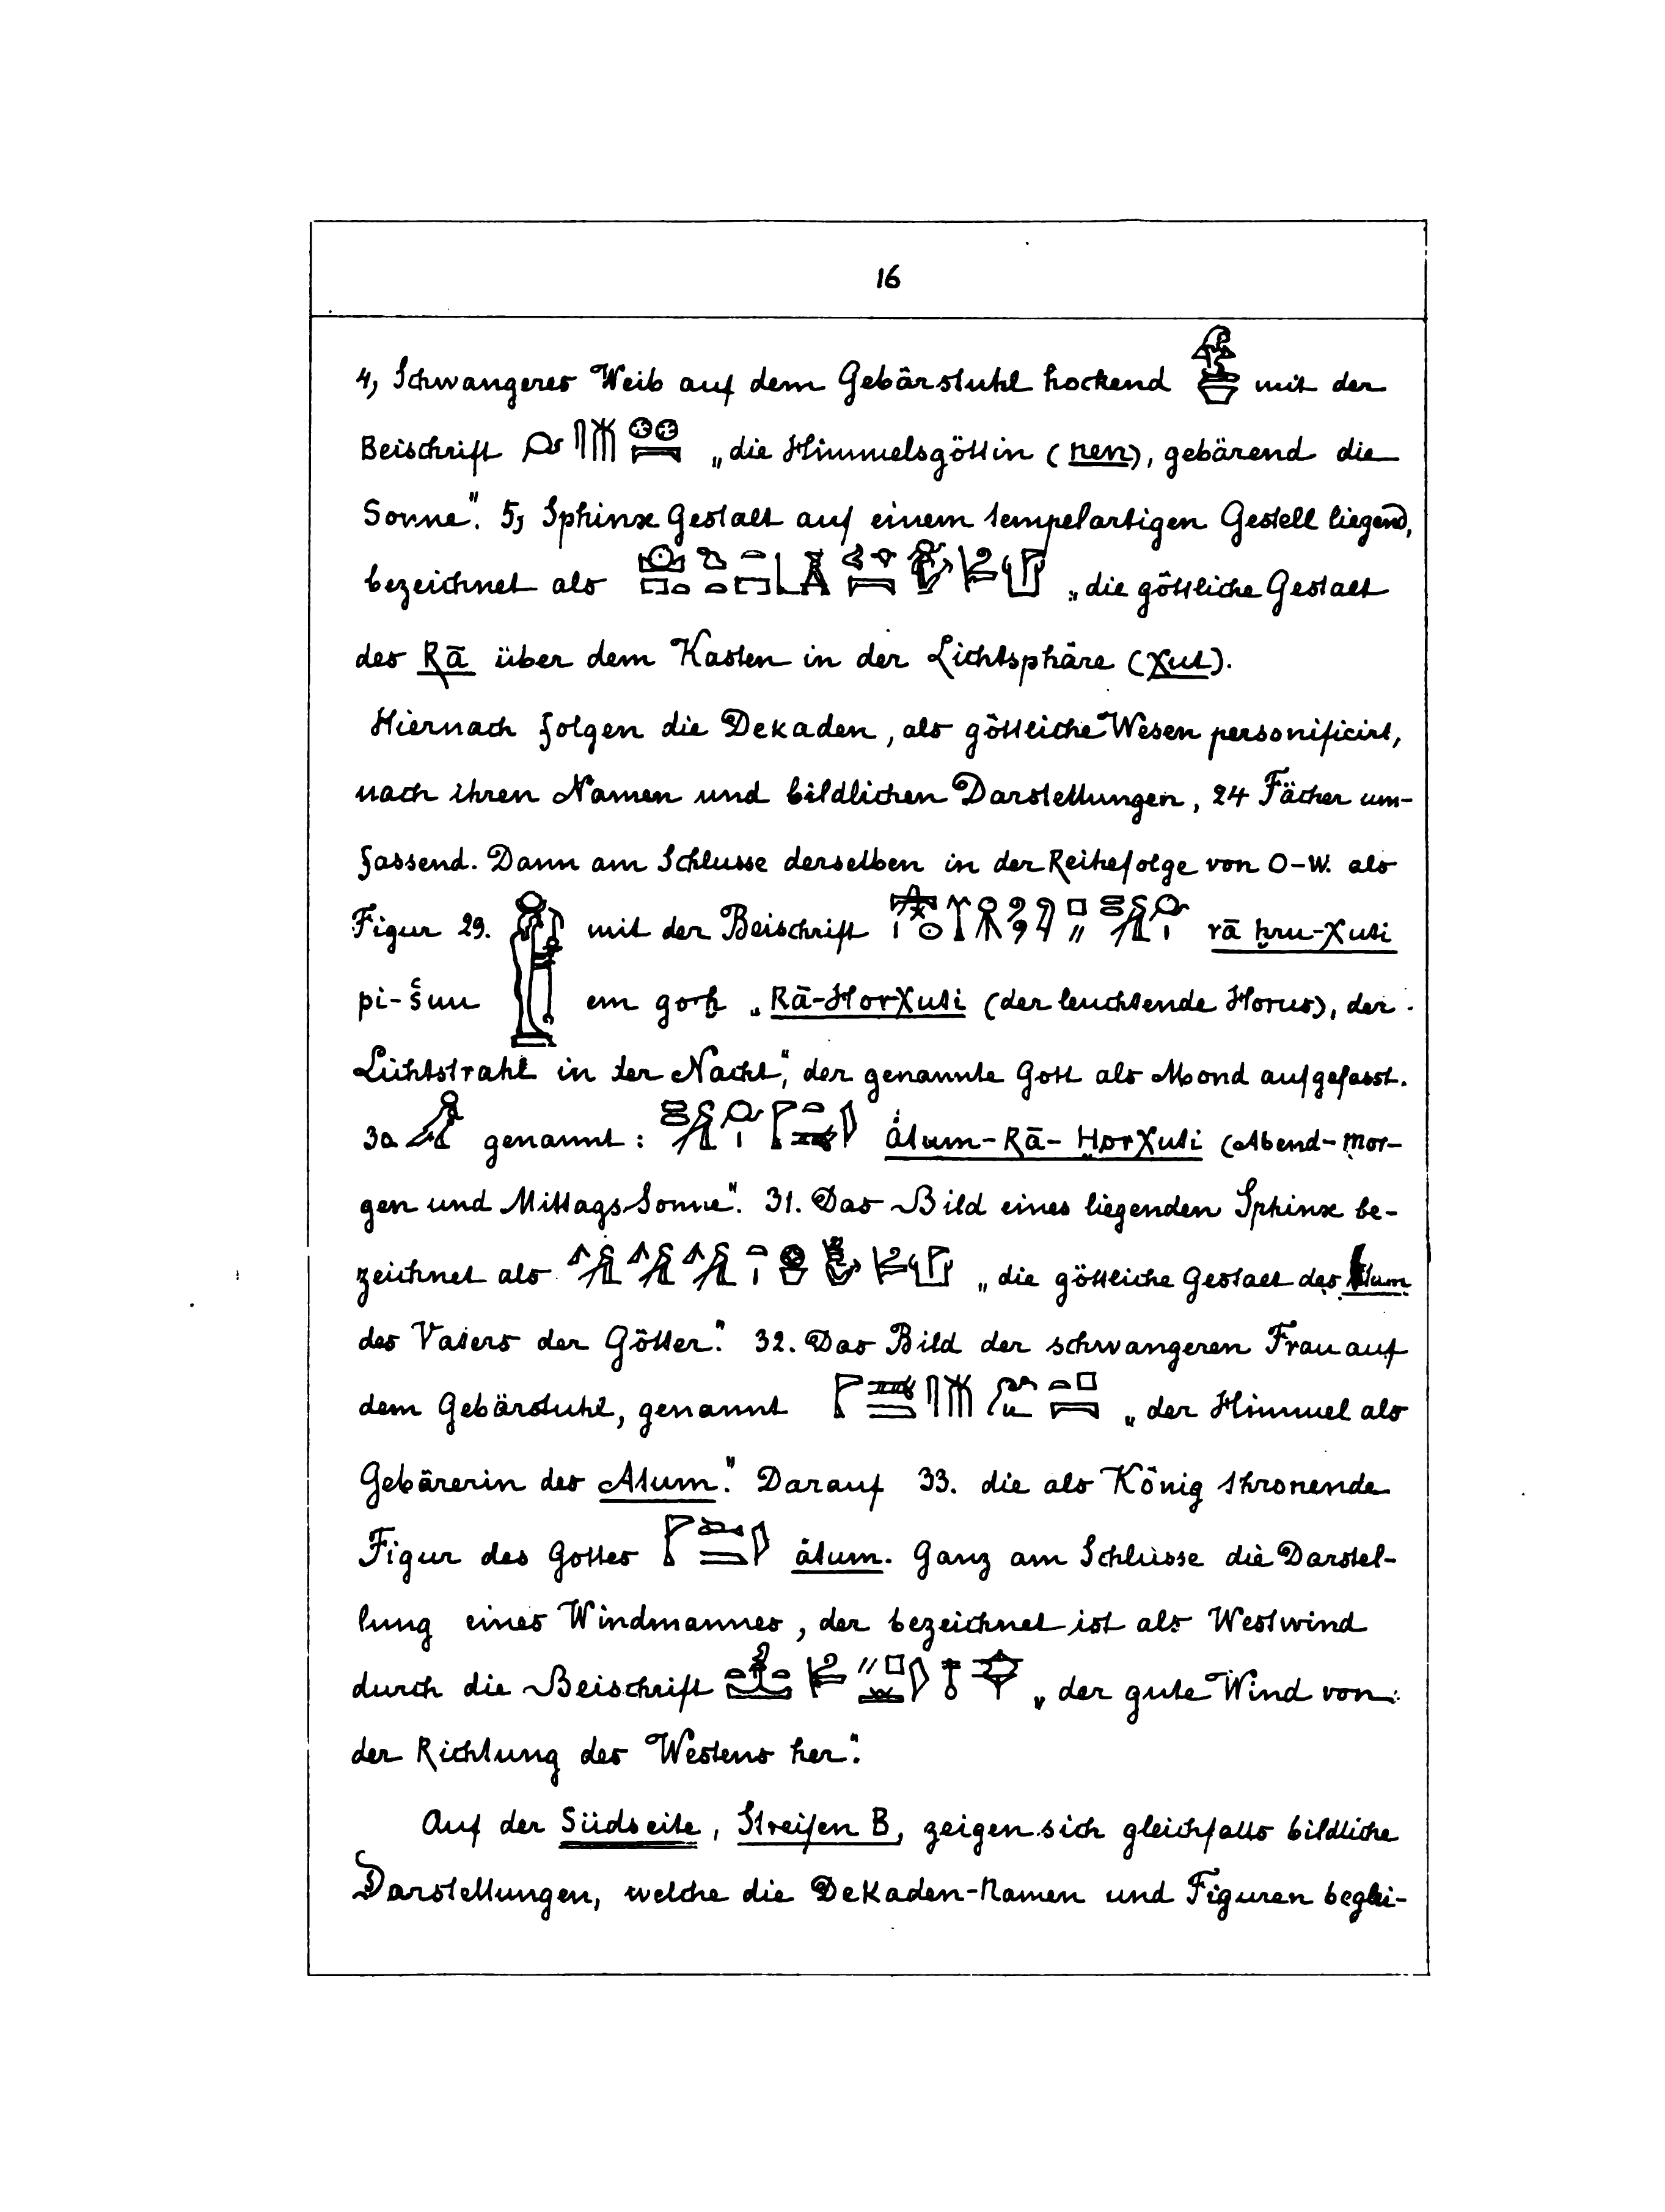 16
4, Schwangeres Weib auf dem Gebärstuhl hockend mit der
Beischrift „die Himmelsgöttin (nen), gebärend die
Sonne“. 5, Sphinx Gestalt auf einem tempelartigen Gestell liegend,
bezeichnet als „die göttliche Gestalt
des Rā über dem Kasten in der Lichtsphäre (χut).
Hiernach folgen die Dekaden, als göttliche Wesen personificirt,
nach ihren Namen und bildlichen Darstellungen, 24 Fächer um-
fassend. Dann am Schlusse derselben in der Reihefolge von O-W. als
Figur 29. mit der Beischrift rā ḥru-χuti
pi-šuu em gorḥ „Rā-Horχuti (der leuchtende Horus), der
Lichtstrahl in der Nacht“, der genannte Gott als Mond aufgefasst.
30 genannt: Átum-Rā-Ḥorχuti (Abend-Mor-
gen und Mittags-Sonne“. 31. Das Bild eines liegenden Sphinx be-
zeichnet als „die göttliche Gestalt des Atum
des Vaters der Götter“. 32. Das Bild der schwangeren Frau auf
dem Gebärstuhl, genannt „der Himmel als
Gebärerin des Atum“. Darauf 33. die als König thronende
Figur des Gottes átum. Ganz am Schlusse die Darstel-
lung eines Windmannes, der bezeichnet ist als Westwind
durch die Beischrift „der gute Wind von
der Richtung des Westens her“.
Auf der Südseite, Streifen B, zeigen sich gleichfalls bildliche
Darstellungen, welche die Dekaden-Namen und Figuren beglei-